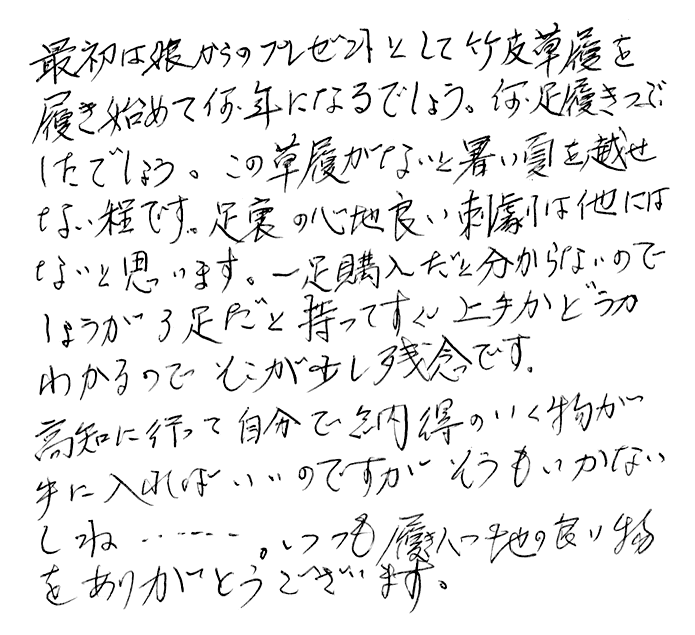 最初は娘からのプレゼントとして竹皮草履を
履き始めて何年になるでしょう。何足履きつぶ
したでしょう。この草履がないと暑い夏を越せ
ない程です。足裏の心地良い刺劇は他には
ないと思います。一足購入だと分からないので
しょうが3足だと持ってすぐ上手かどうか
わかるのでそこが少し残念です。
高知に行って自分で納得のいく物が
手に入ればいいのですがそうもいかない
しね……。いつも履き心地の良い物
をありがとうございます。